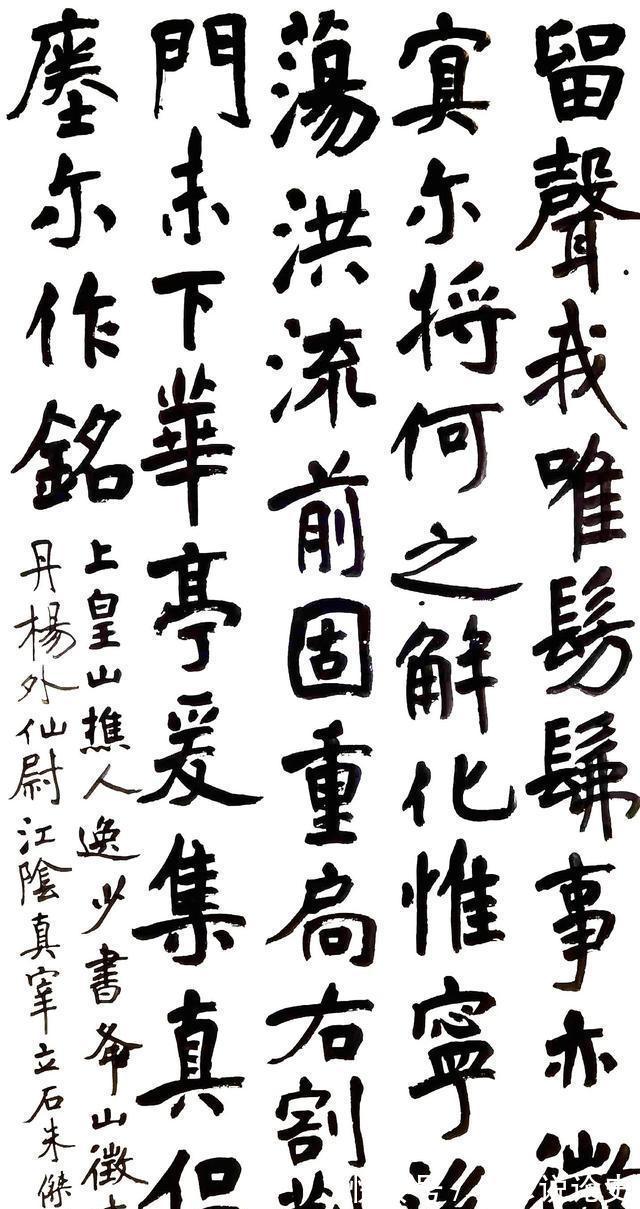 留聲我唯髣髴事亦微
尔将何之解化惟寧後
蕩洪流前固重扃右割荆
門未下華亭爰集真侣
尔作銘
上皇山樵人逸少書夅山徵
丹楊外仙尉江陰真宰立石朱傑
说论史